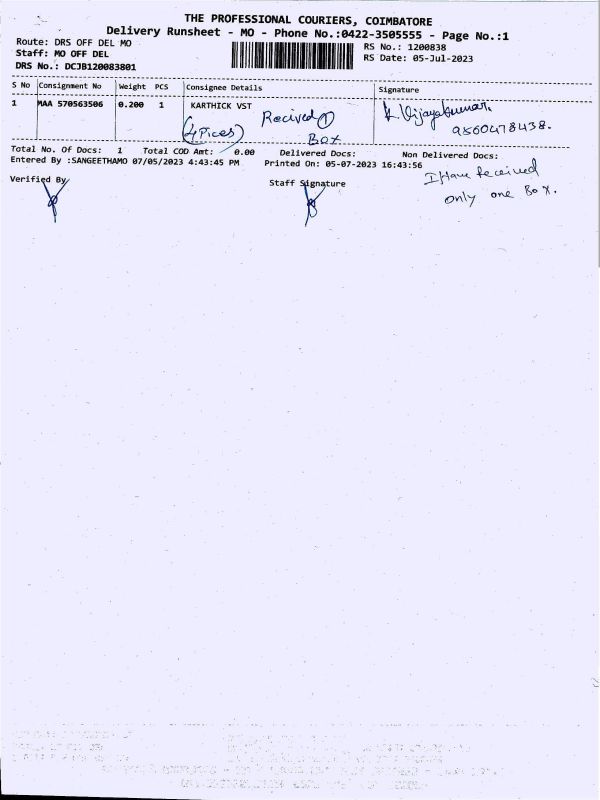 THE PROFESSIONAL COURIERS, COIMBATORE
Delivery Runsheet - MO - Phone No.:0422-3505555 - Page No.:1
Route: DRS OFF DEL MO
RS No.: 1200838
Staff: MO OFF DEL
RS Date: 05-Jul-2023
DRS No.: DCJB120083801
S No Consignment No Weight PCS Consignee Details Signature
1 MAA 570563506 0.200 1 KARTHICK VST K. Vijayakumar.
(4 Pices) Recived 1 Box 9560478438.
Total No. Of Docs: 1 Total COD Amt: 0.00 Delivered Docs: Non Delivered Docs:
Entered By :SANGEETHAMO 07/05/2023 4:43:45 PM Printed On: 05-07-2023 16:43:56
Verified By Staff Signature
I Have Received
only one Box.